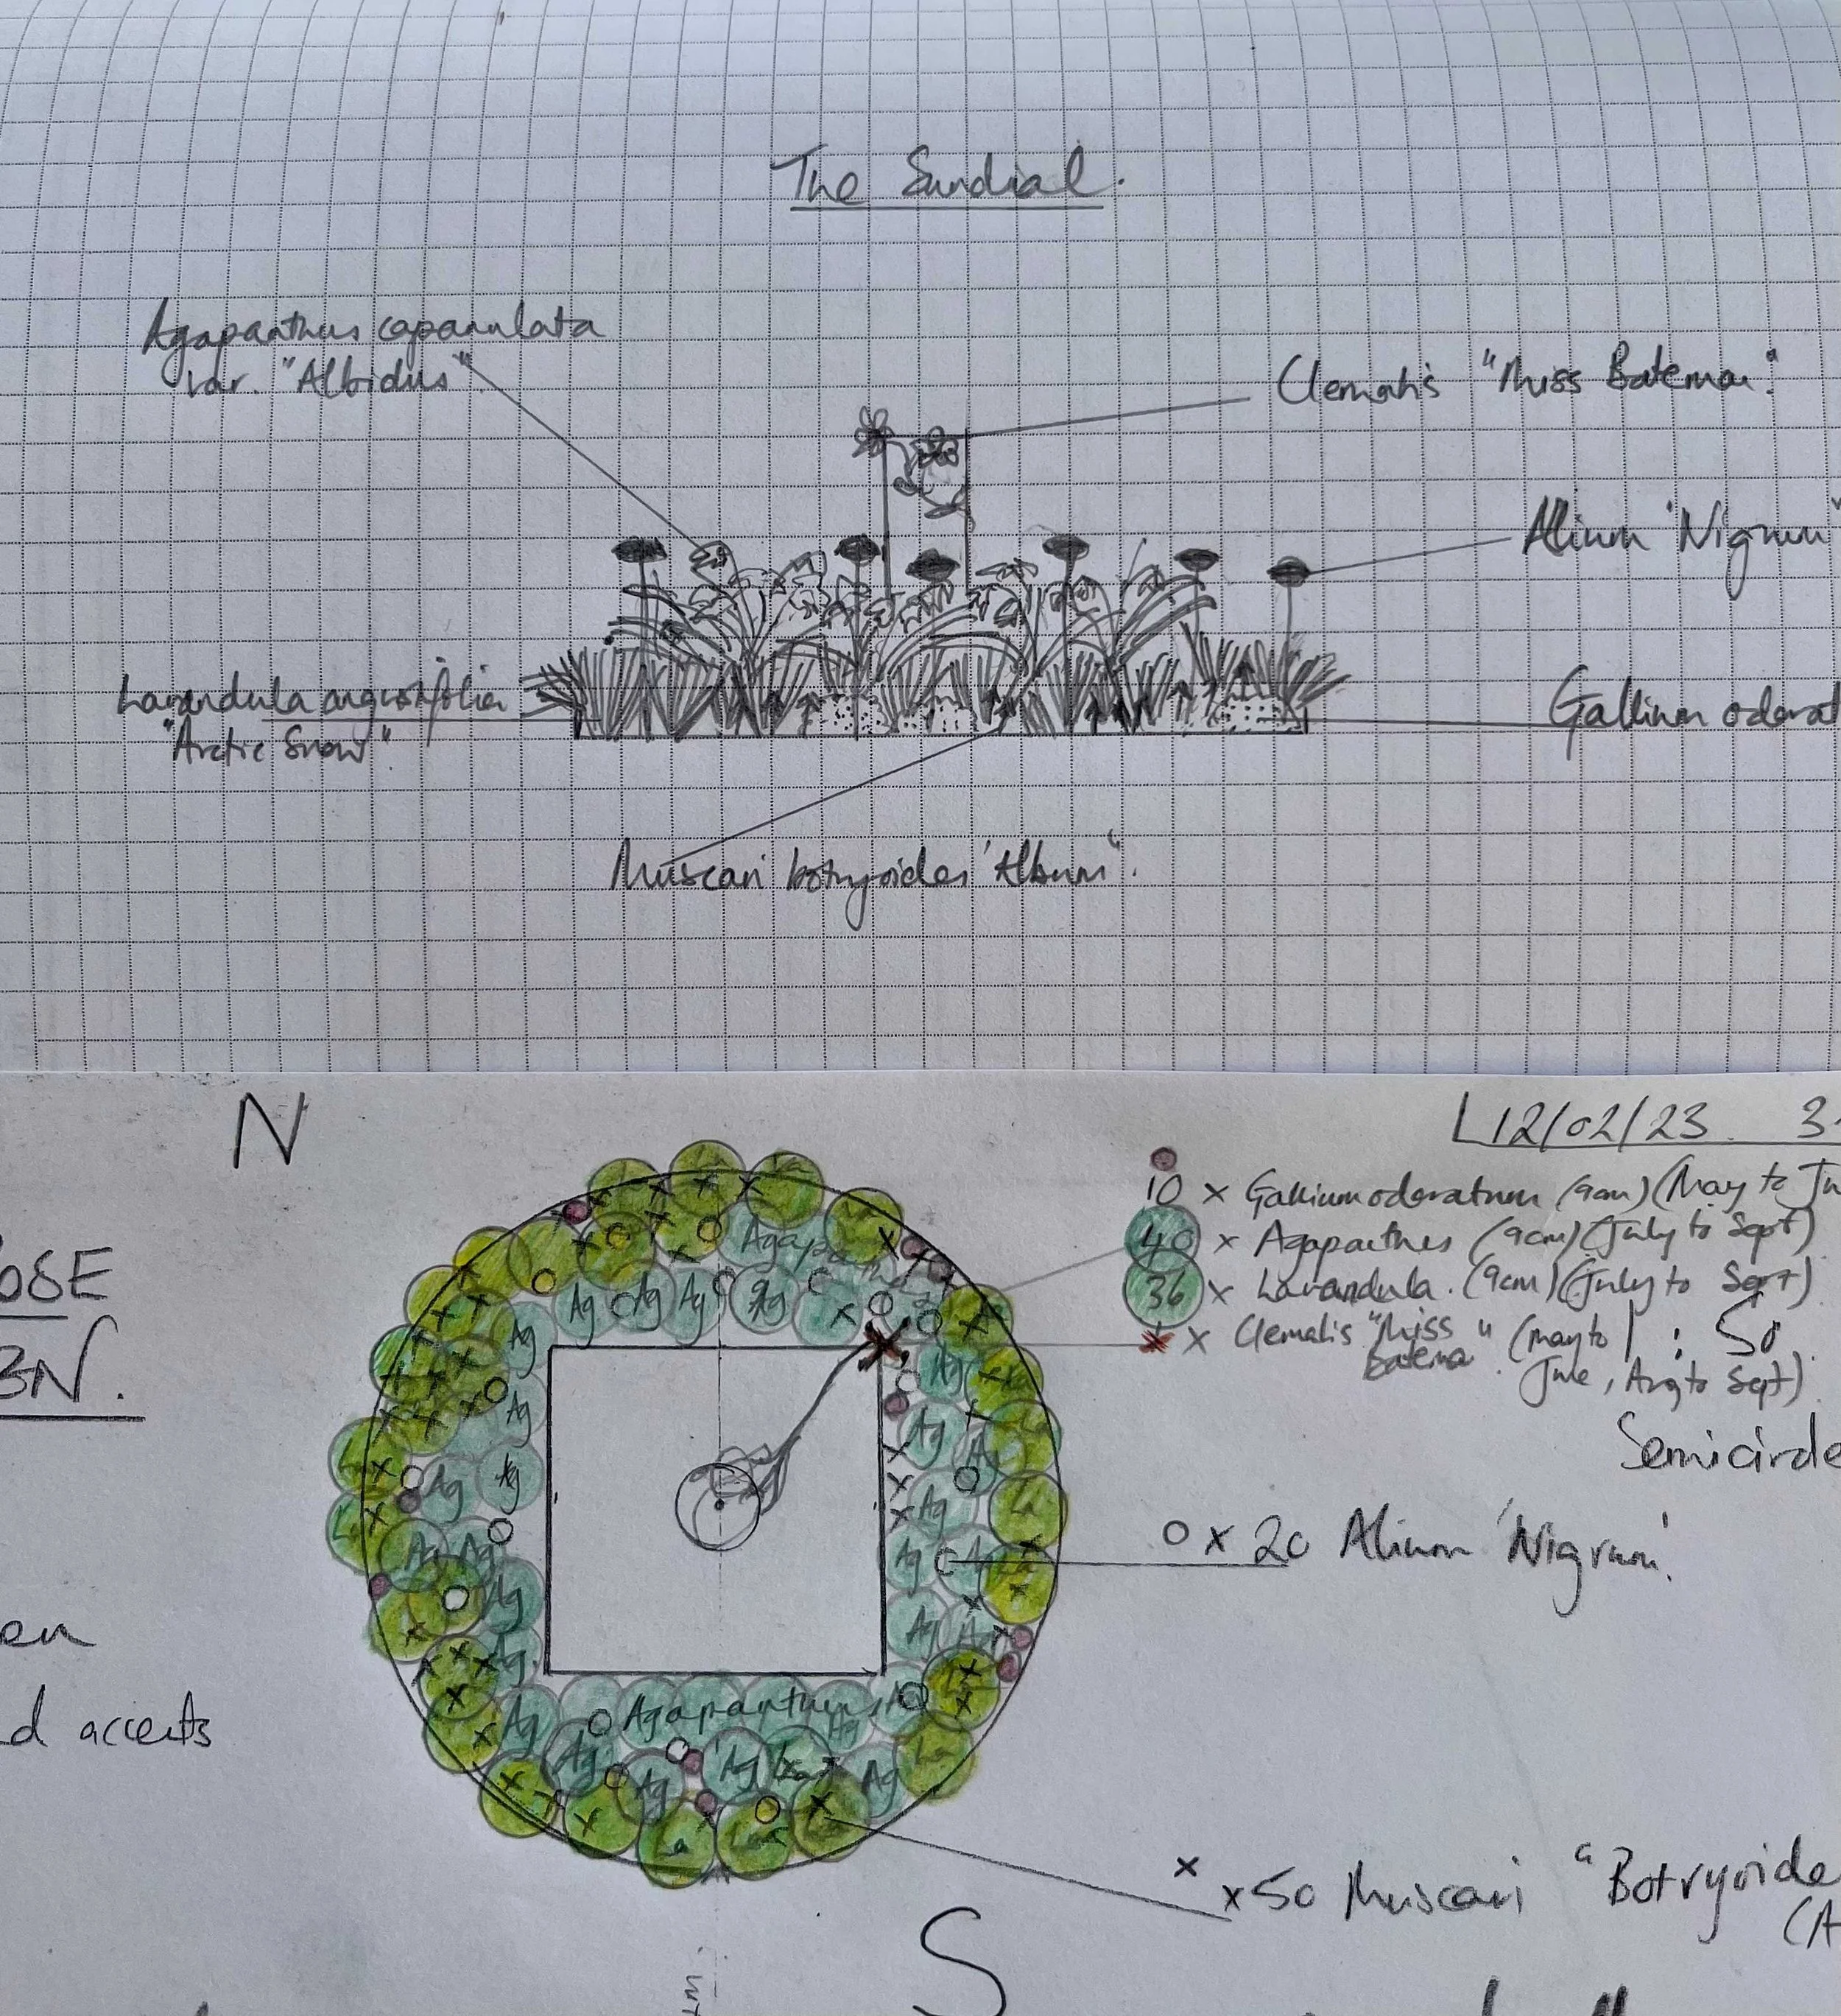 The Sundial.
Agapanthus capanulata
var. "Albidus"
Clematis "Miss Bateman"
Allium 'Nigrum'
Lavandula angustifolia
"Arctic Snow".
Gallium odorat
Muscari botryoides 'Album'.
N
12/02/23 3
OSE
3N.
10 x Gallium oderatum (9cm) (May to Ju
40 x Agapanthus (9cm) (July to Sept)
36 x Lavandula. (9cm) (July to Sept)
x Clematis "Miss Batema" (May to
June, Aug to Sept)
1 : 50
Semicircle
en
d accents
Agapanthus
o x 20 Allium 'Nigrum'
x x50 Muscari "Botryoide
(A
S